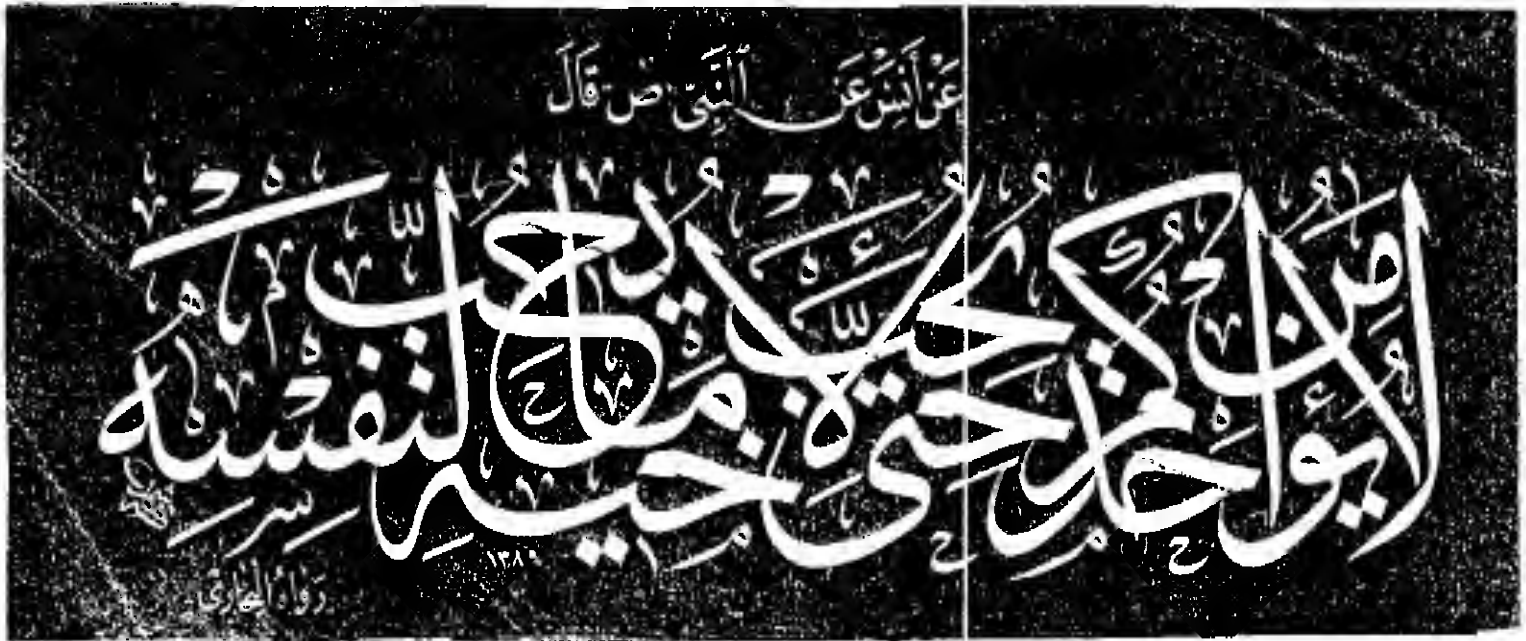 عَنْ أَنَسٍ عَنِ ٱلنَّبِيِّ ص قَالَ
لَا يُؤْمِنُ أَحَدُكُمْ حَتَّى يُحِبَّ لِأَخِيهِ مَا يُحِبُّ لِنَفْسِهِ
١٣٨٠
رَوَاهُ الْبُخَارِيُّ